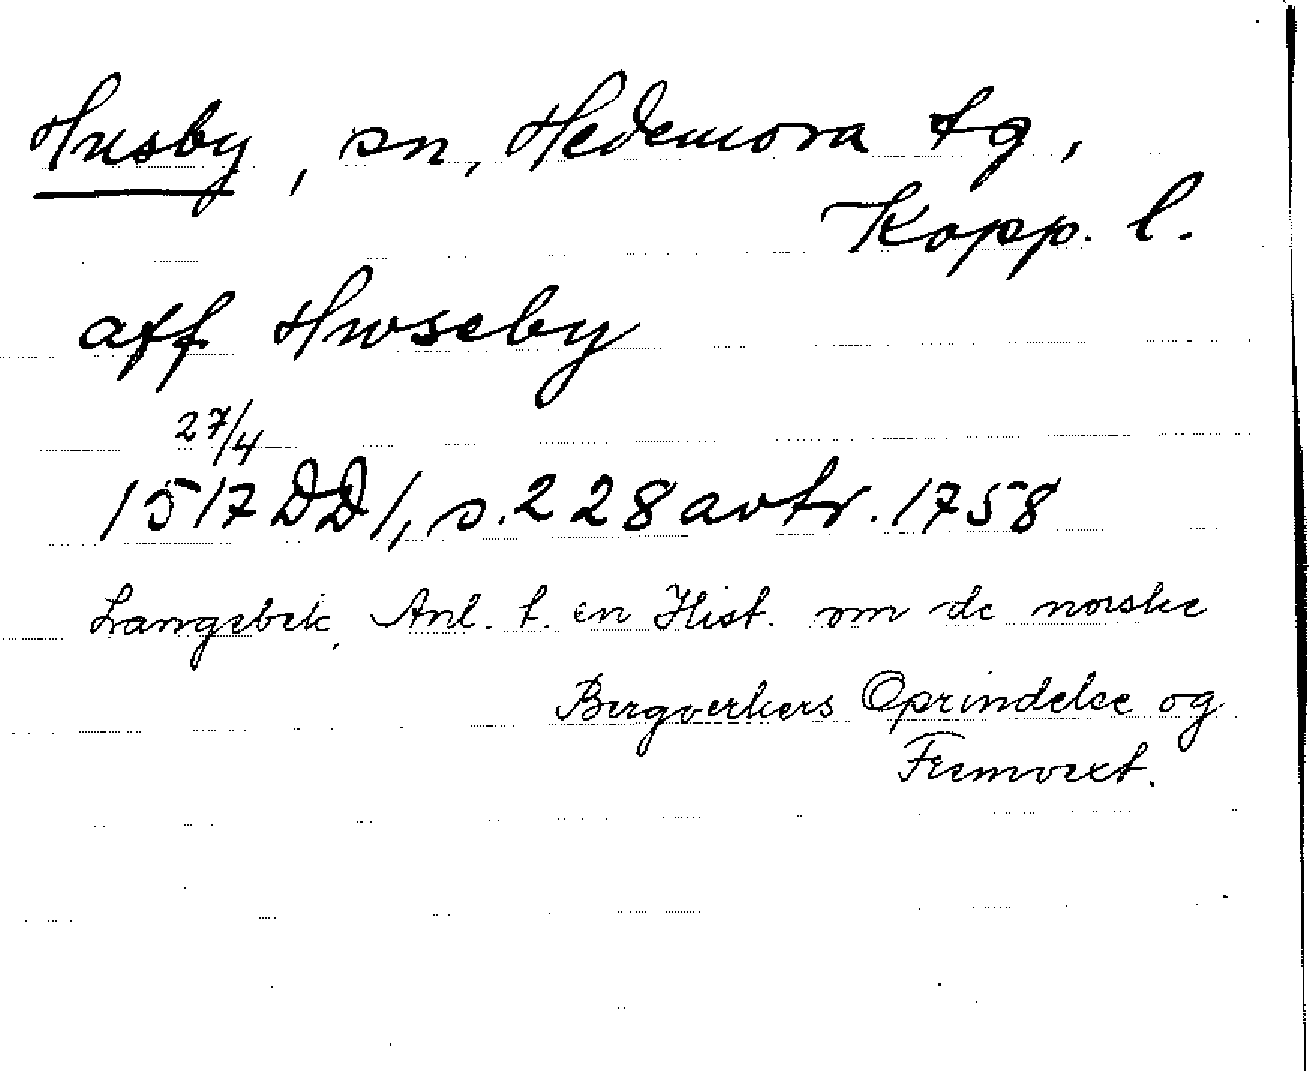 Husby, sn, Hedemora tg,
Kopp. l.
aff Hwseby
27/4
1517 DD 1, s. 228 avtr. 1758
Langebek, Anl. t. en Hist. om de norske
Bergverkers Oprindelse og
Fremvext.